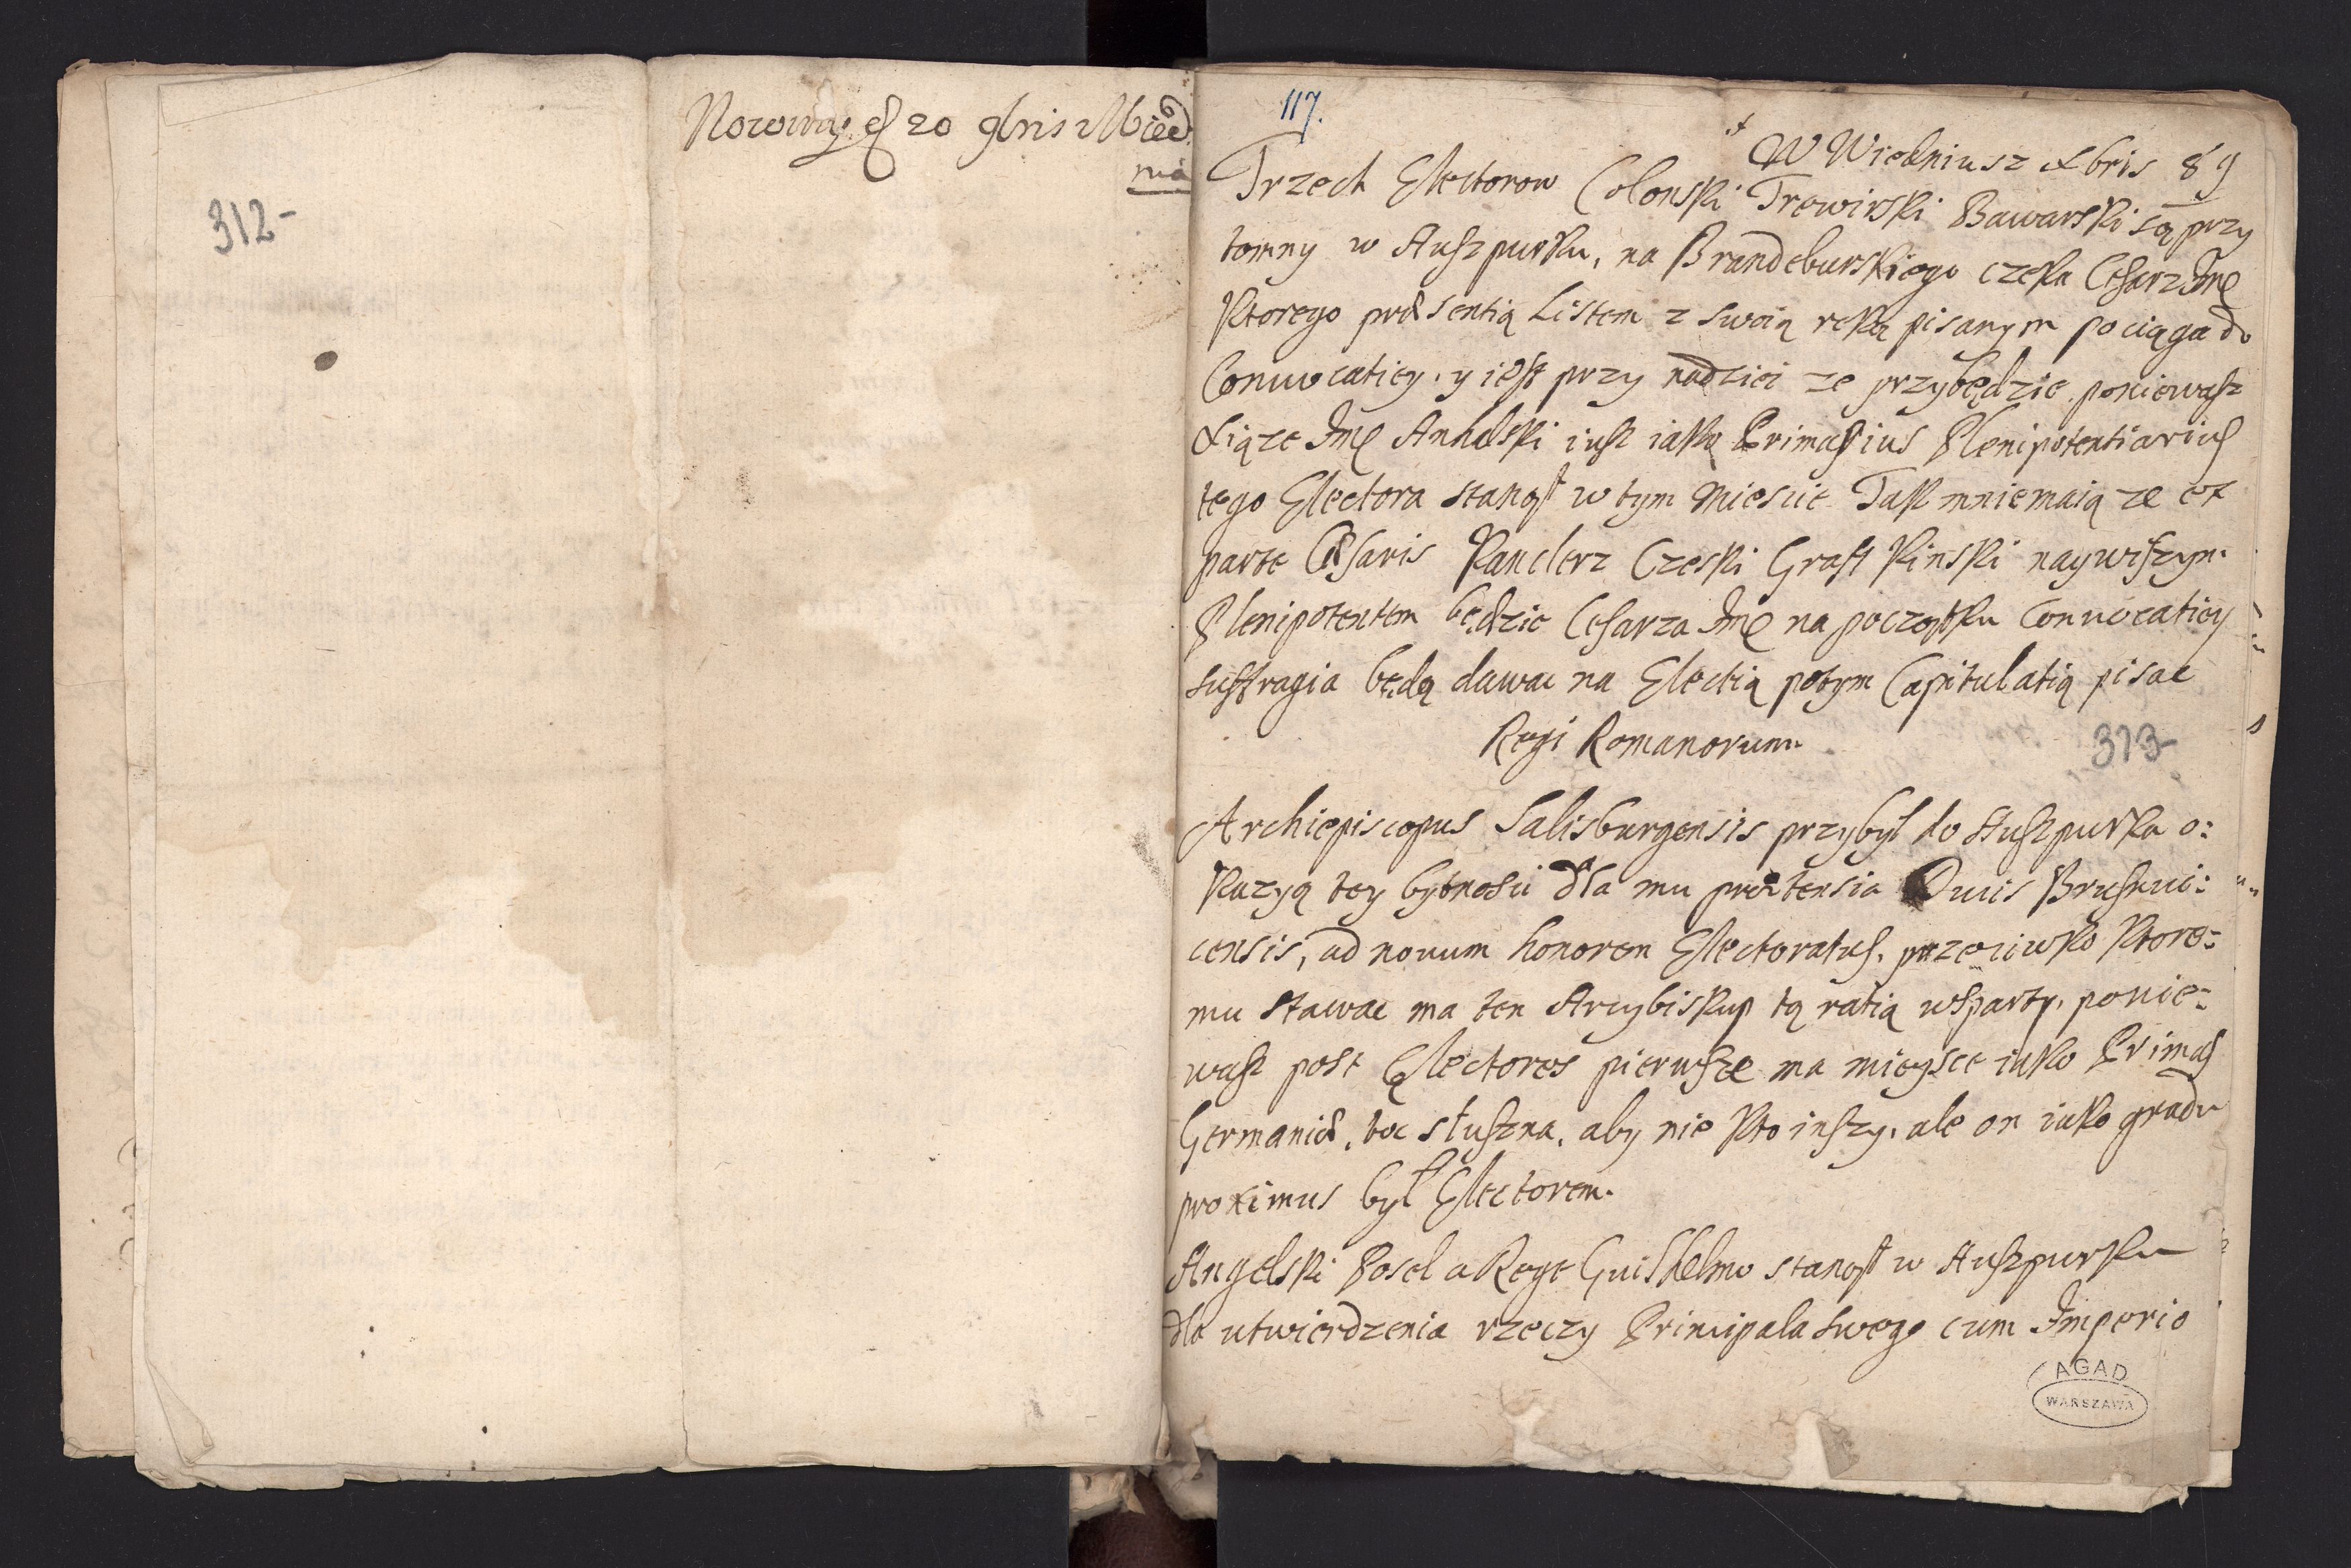 312-
Nowiny d 20 9bris z Wied
nia
117.
W Wiedniu 5 2 Xbris 89
Trzech Electorow Colonski Trewirski Bawarski są przy
tomny w Auszpurku, na Brandeburskiego czeka Cesarz Jmę
ktorego præsentią Listem z swoią ręką pisanym pociąga do
Conuocatiey, y iest przy nadziei ze przybędzie poniewasz
Xiąze Jmę Anhalski iusz iako Primarius Plenipotentiarius
tego Electora stanął w tym miescie Tak mniemaią ze ex
parte Cæsaris Kanclerz Czeski Graff Kinski naywiszym
Plenipotentem będzie Cesarza Jmę na początku Conuocatiey
suffragia będą dawac na Electią potym Capitulatią pisac
Regi Romanorum
313-
Archiepiscopus Salisburgensis przybył do Auszpurka o:
kazyą tey bytnosci dla mu prætensia Ducis Brusnui:
censis, ad nouum honorem Electoratus, przeciwko ktore:
mu stawac ma ten Arcybiskup tą ratią wsparty, ponie:
wasz post Electores pierwsze ma mieysce iako Primas
Germaniæ, toc słuszna, aby nie kto inszy, ale on iako gradu
proximus był Electorem.
Angelski Posel a Rege Guilhelmo stanął w Auszpurku
dla utwierdzenia rzeczy Principala swego cum Imperio
AGAD
WARSZAWA